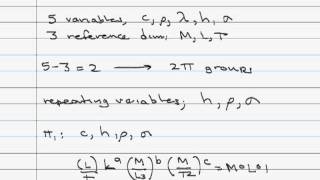 5 variables, c, ρ, λ, h, σ
3 reference dim, M, L, T
5-3=2 → 2π groups
repeating variables; h, ρ, σ
π₁: c, h, ρ, σ
(L/T) L^a (M/L3)^b (M/T2)^c = M0L0T